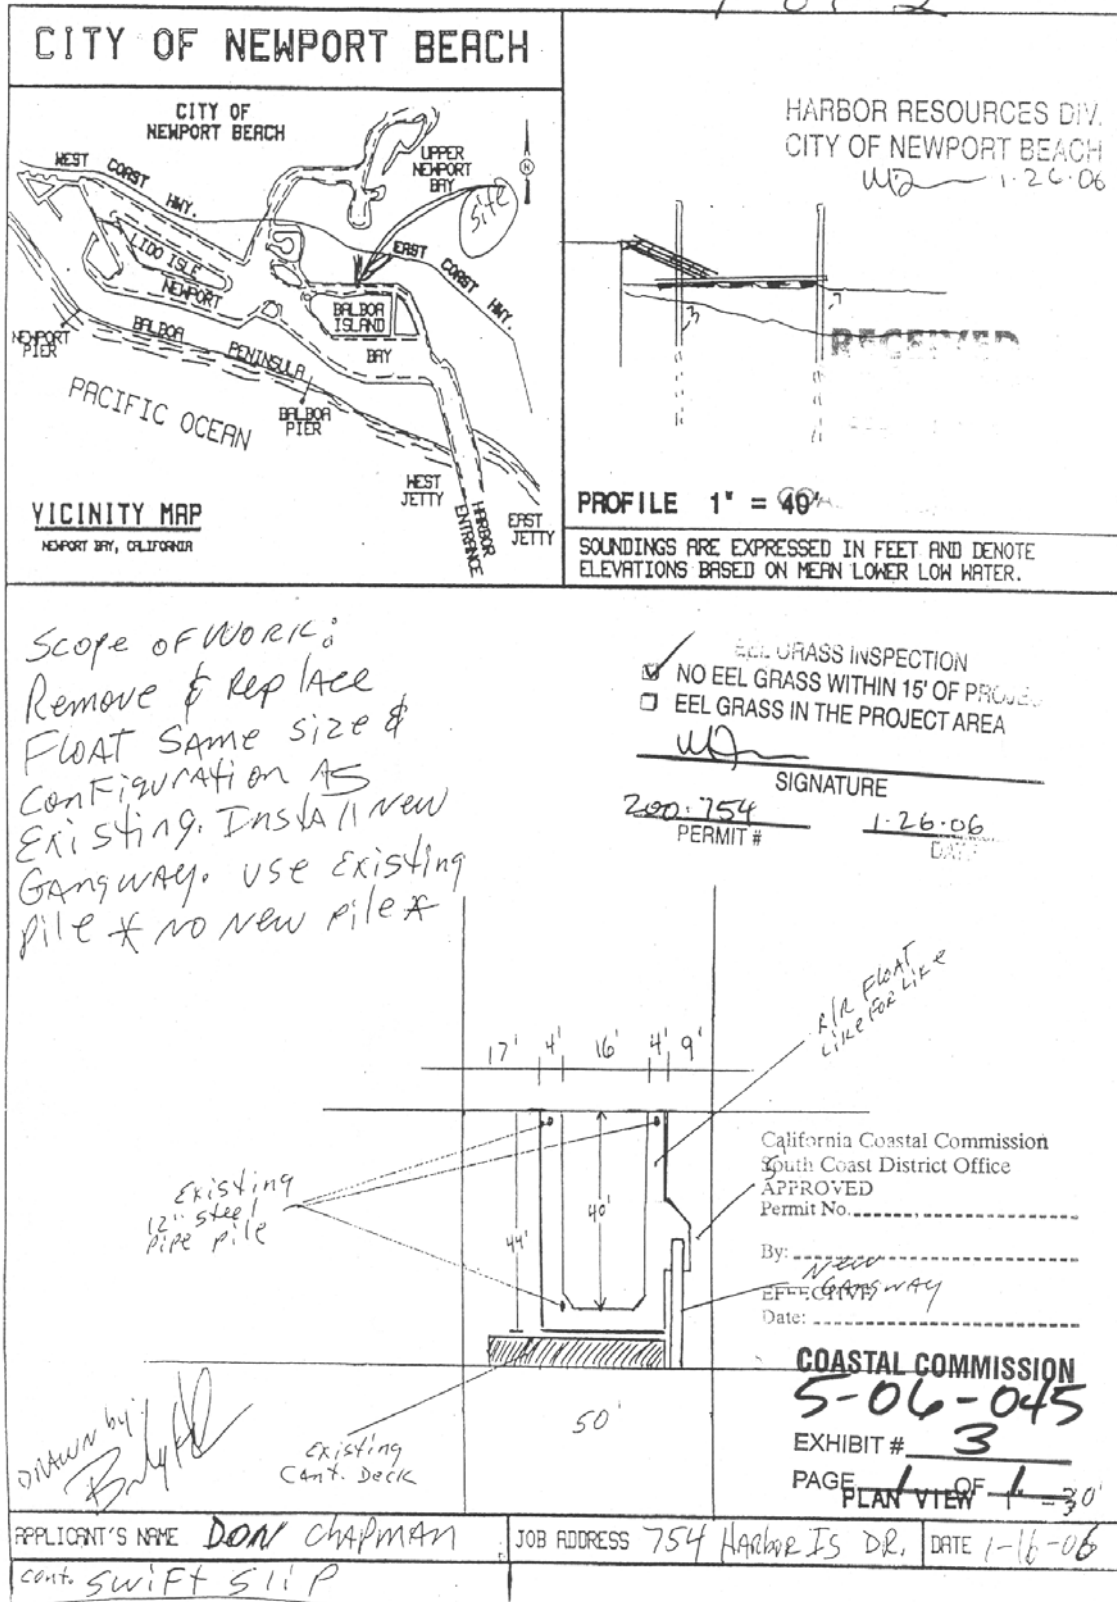 1 OF 2
CITY OF NEWPORT BEACH
CITY OF
NEWPORT BEACH
WEST COAST HWY.
UPPER
NEWPORT
BAY
Site
N
LIDO ISLE
NEWPORT
EAST COAST HWY.
BALBOA
ISLAND
BAY
NEWPORT
PIER
BALBOA PENINSULA
BALBOA
PIER
PACIFIC OCEAN
WEST
JETTY
HARBOR
ENTRANCE
EAST
JETTY
VICINITY MAP
NEWPORT BAY, CALIFORNIA
HARBOR RESOURCES DIV.
CITY OF NEWPORT BEACH
1-26-06
3
7
RECEIVED
PROFILE 1" = 40'
SOUNDINGS ARE EXPRESSED IN FEET AND DENOTE
ELEVATIONS BASED ON MEAN LOWER LOW WATER.
Scope OF WORK:
Remove & Replace
FLOAT SAME Size &
ConFiguration AS
Existing. Install New
GANGWAY. USE Existing
pile * NO New pile *
EEL GRASS INSPECTION
NO EEL GRASS WITHIN 15' OF PROJEC
EEL GRASS IN THE PROJECT AREA
SIGNATURE
200-754 1-26-06
PERMIT # DATE
R/R FLOAT
LIKE FOR LIKE
17' 4' 16' 4' 9'
Existing
12" steel
pipe pile
44'
40'
California Coastal Commission
South Coast District Office
APPROVED
Permit No.
By:
New
GANGWAY
EFFECTIVE
Date:
COASTAL COMMISSION
5-06-045
EXHIBIT # 3
PAGE 1 OF 1
PLAN VIEW 1" = 30'
50'
Existing
Cant. Deck
DRAWN by:
APPLICANT'S NAME DON CHAPMAN
JOB ADDRESS 754 HARBOR IS DR.
DATE 1-16-06
cont. SWIFT SLIP